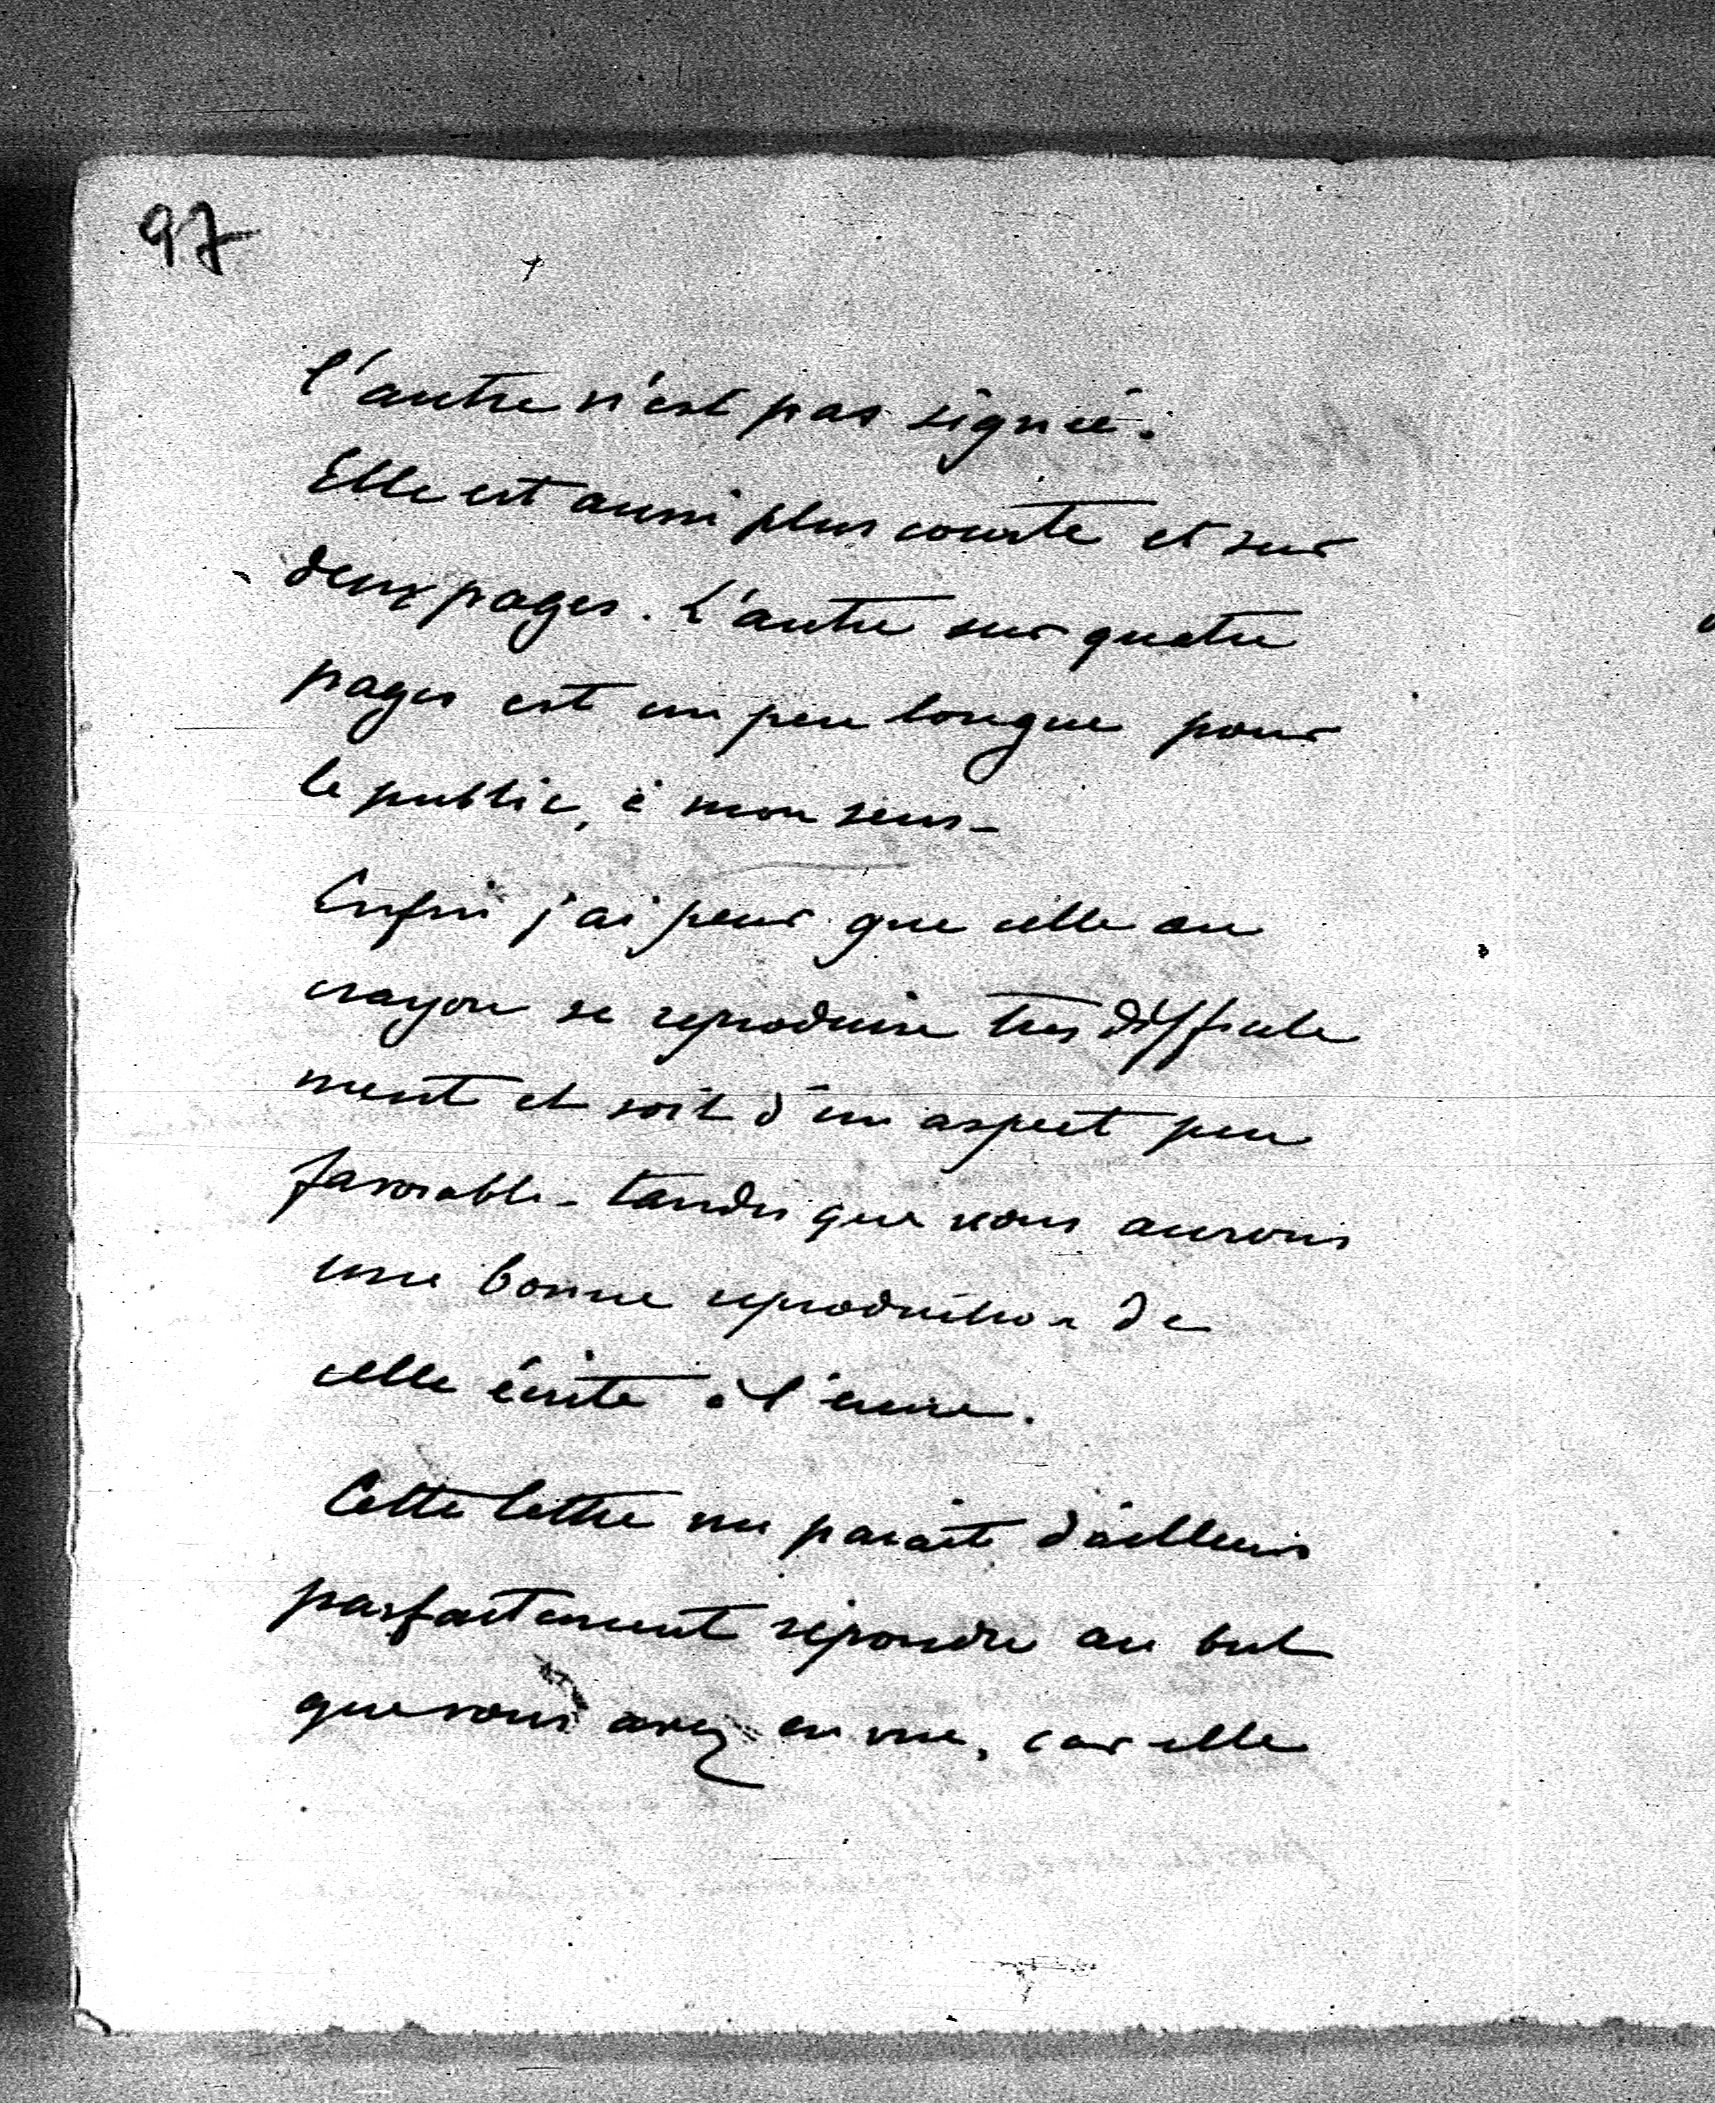 97
l'autre n'est pas signée.
Elle est aussi plus courte et sur
deux pages. L'autre sur quatre
pages est un peu longue pour
le public, à mon sens -
Enfin j'ai peur que celle au
crayon se reproduise très difficile
ment et soit d'un aspect peu
favorable - tandis que nous aurons
une bonne reproduction de
celle écrite à l'encre.
Cette lettre me paraît d'ailleurs
parfaitement répondre au but
que vous avez en vue, car elle